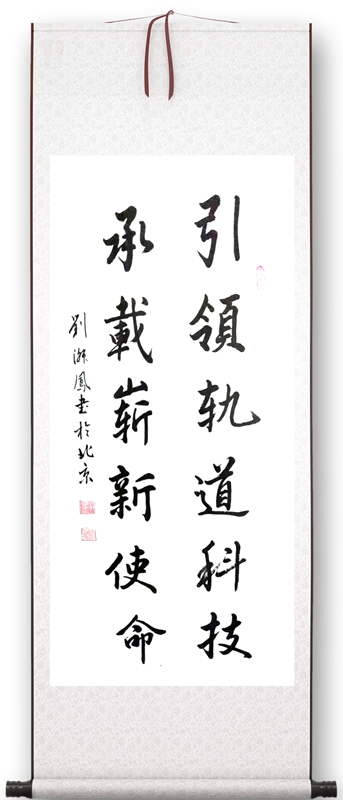 引領轨道科技
承載嶄新使命
劉淑鳳書於北京